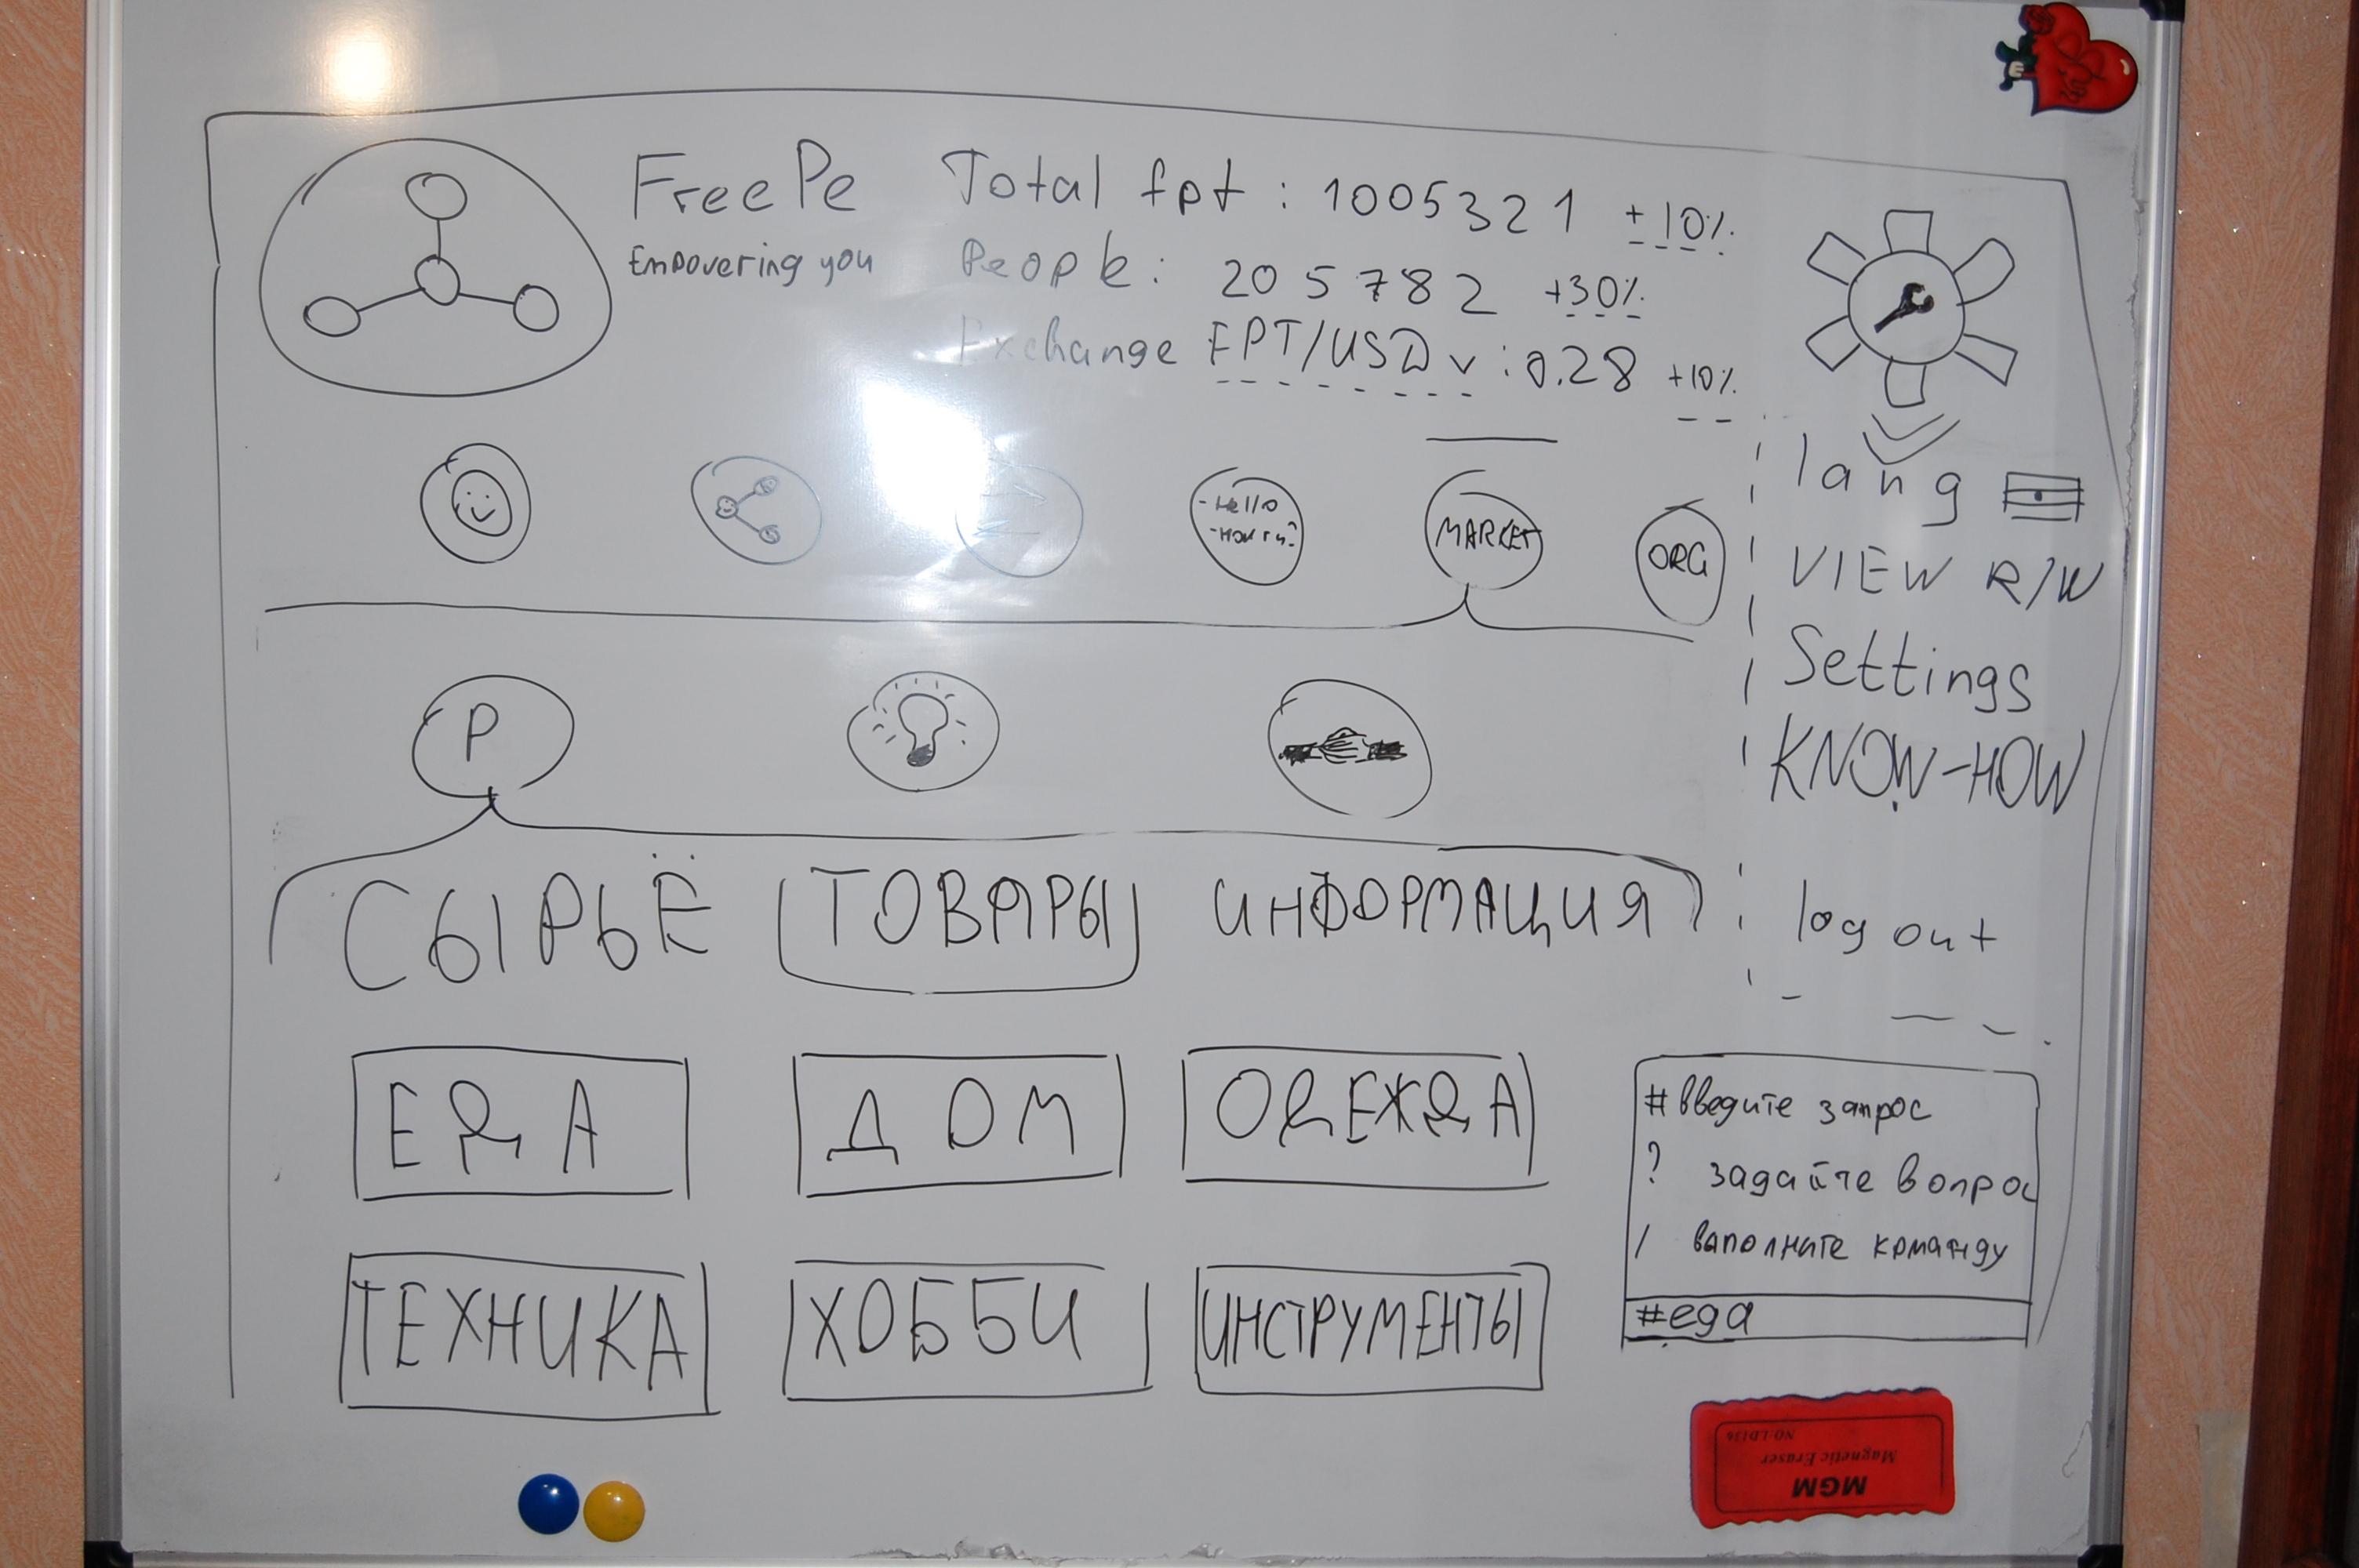 FreePe
Empovering you
Total fpt : 1005321 +10%
People : 205782 +30%
Exchange FPT/USD v : 0.28 +10%
- Hello
MARKET
ORG
lang
VIEW R/W
Settings
KNOW-HOW
log out
P
СЫРЬЁ ТОВАРЫ ИНФОРМАЦИЯ
ЕДА ДОМ ОДЕЖДА
ТЕХНИКА ХОББИ ИНСТРУМЕНТЫ
# введите запрос
? задайте вопрос
/ выполните команду
#еда
MGM
Magnetic Eraser
NO:LD136